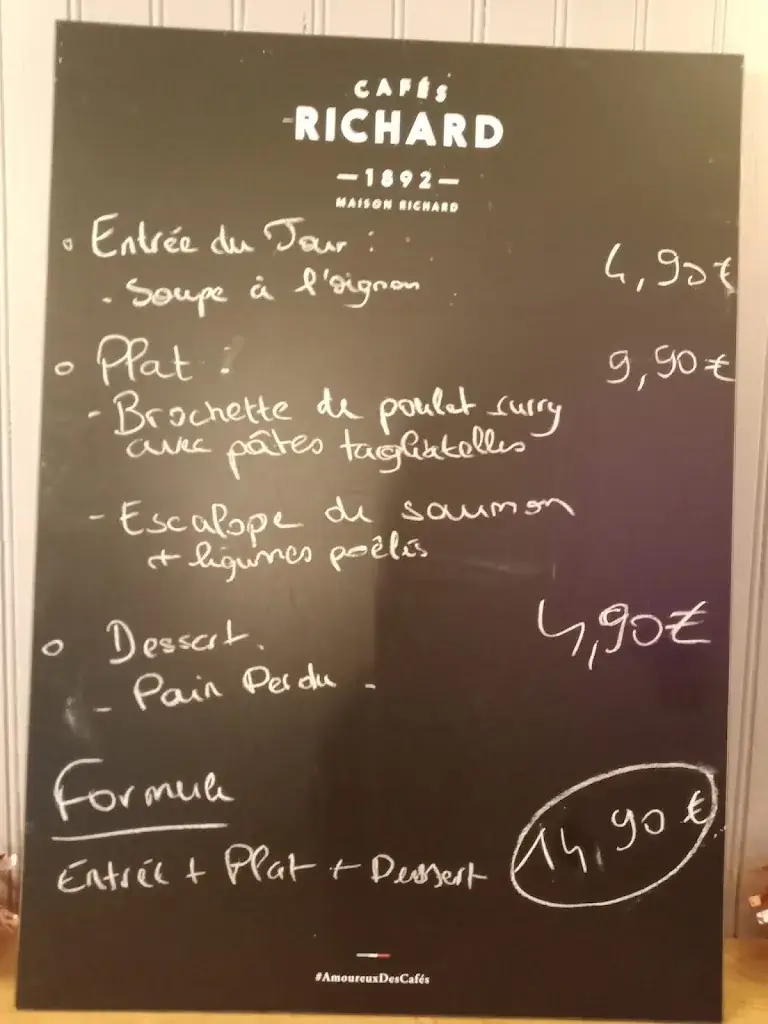 CAFÉS
RICHARD
—1892—
MAISON RICHARD
◦ Entrée du Jour : 4,90€
- Soupe à l'oignon
◦ Plat : 9,90€
- Brochette de poulet curry
avec pâtes tagliatelles
- Escalope de saumon
+ légumes poêlés
◦ Dessert. 4,90€
- Pain Perdu -
Formule
Entrée + Plat + Dessert 14,90€
#AmoureuxDesCafés